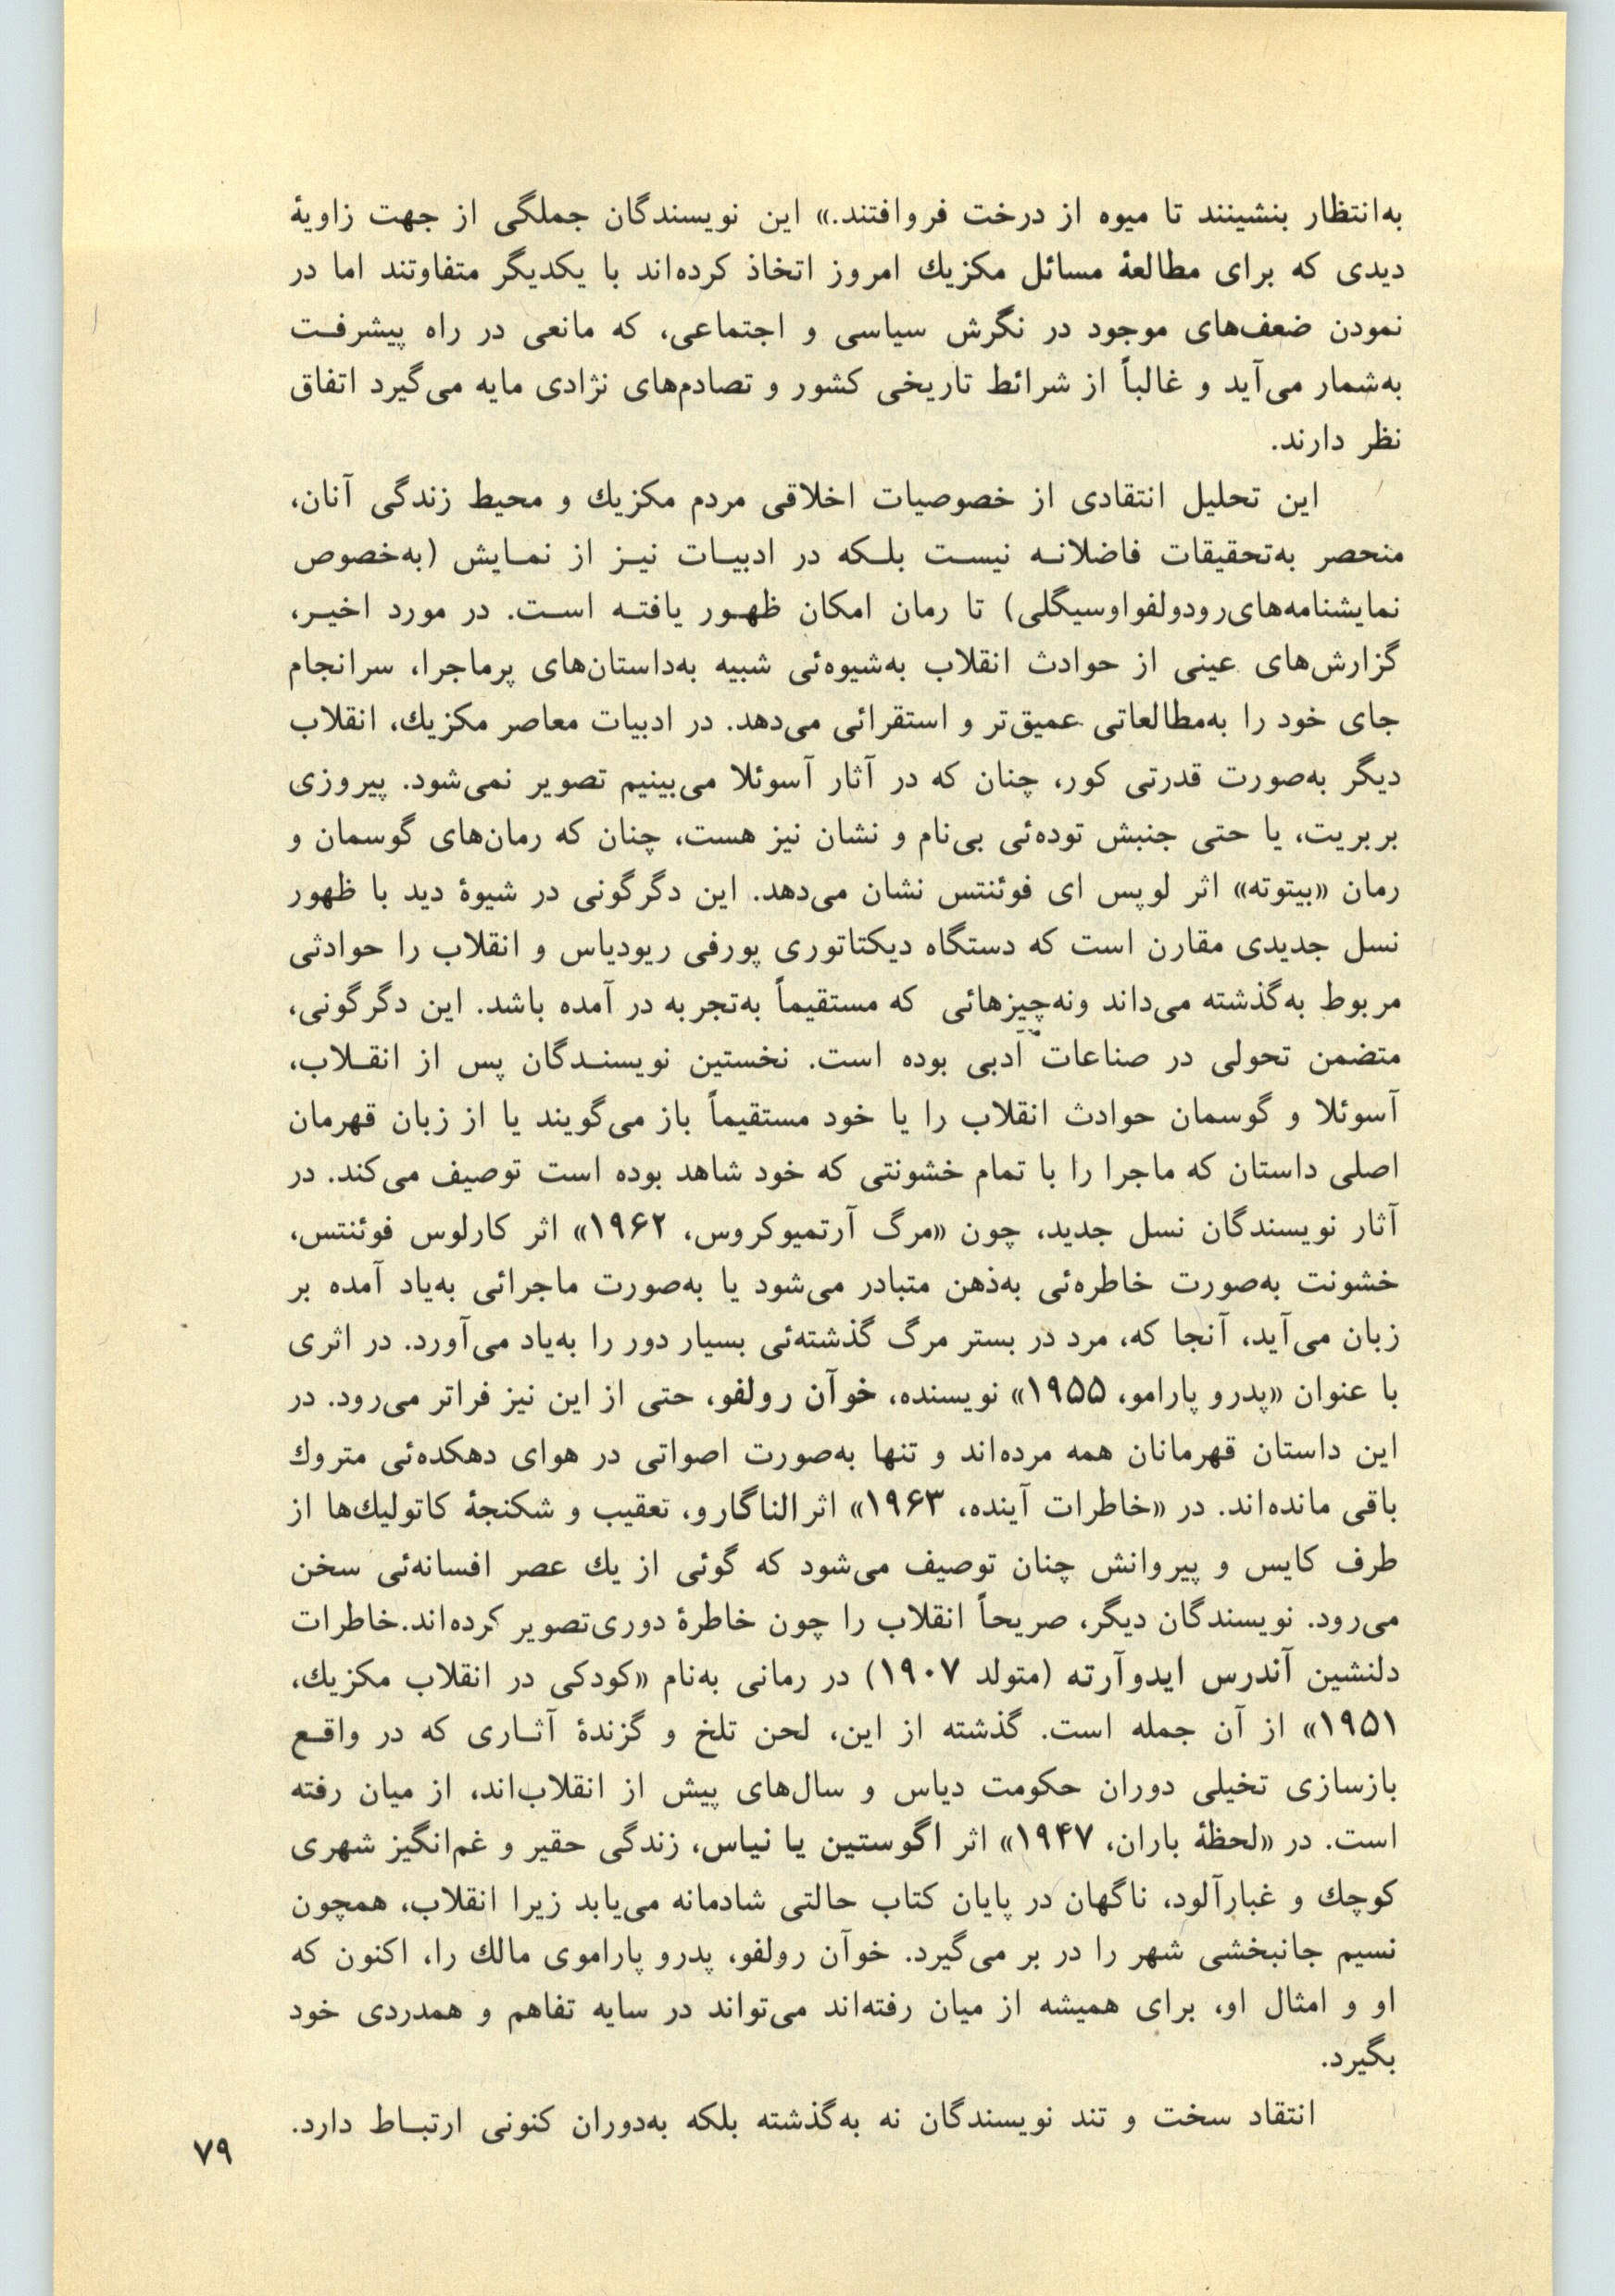 به‌انتظار بنشینند تا میوه از درخت فروافتند.» این نویسندگان جملگی از جهت زاویهٔ
دیدی که برای مطالعهٔ مسائل مکزیك امروز اتخاذ کرده‌اند با یکدیگر متفاوتند اما در
نمودن ضعف‌های موجود در نگرش سیاسی و اجتماعی، که مانعی در راه پیشرفت
به‌شمار می‌آید و غالباً از شرائط تاریخی کشور و تصادم‌های نژادی مایه می‌گیرد اتفاق
نظر دارند.
این تحلیل انتقادی از خصوصیات اخلاقی مردم مکزیك و محیط زندگی آنان،
منحصر به‌تحقیقات فاضلانه نیست بلکه در ادبیات نیز از نمایش (به‌خصوص
نمایشنامه‌های‌رودولفواوسیگلی) تا رمان امکان ظهور یافته است. در مورد اخیر،
گزارش‌های عینی از حوادث انقلاب به‌شیوه‌ئی شبیه به‌داستان‌های پرماجرا، سرانجام
جای خود را به‌مطالعاتی عمیق‌تر و استقرائی می‌دهد. در ادبیات معاصر مکزیك، انقلاب
دیگر به‌صورت قدرتی کور، چنان که در آثار آسوئلا می‌بینیم تصویر نمی‌شود. پیروزی
بربریت، یا حتی جنبش توده‌ئی بی‌نام و نشان نیز هست، چنان که رمان‌های گوسمان و
رمان «بیتوته» اثر لوپس ای فوئنتس نشان می‌دهد. این دگرگونی در شیوهٔ دید با ظهور
نسل جدیدی مقارن است که دستگاه دیکتاتوری پورفی ریودیاس و انقلاب را حوادثی
مربوط به‌گذشته می‌داند ونه‌چیزهائی که مستقیماً به‌تجربه در آمده باشد. این دگرگونی،
متضمن تحولی در صناعات ادبی بوده است. نخستین نویسندگان پس از انقلاب،
آسوئلا و گوسمان حوادث انقلاب را یا خود مستقیماً باز می‌گویند یا از زبان قهرمان
اصلی داستان که ماجرا را با تمام خشونتی که خود شاهد بوده است توصیف می‌کند. در
آثار نویسندگان نسل جدید، چون «مرگ آرتمیوکروس، ۱۹۶۲» اثر کارلوس فوئنتس،
خشونت به‌صورت خاطره‌ئی به‌ذهن متبادر می‌شود یا به‌صورت ماجرائی به‌یاد آمده بر
زبان می‌آید، آنجا که، مرد در بستر مرگ گذشته‌ئی بسیار دور را به‌یاد می‌آورد. در اثری
با عنوان «پدرو پارامو، ۱۹۵۵» نویسنده، خوآن رولفو، حتی از این نیز فراتر می‌رود. در
این داستان قهرمانان همه مرده‌اند و تنها به‌صورت اصواتی در هوای دهکده‌ئی متروك
باقی مانده‌اند. در «خاطرات آینده، ۱۹۶۳» اثر الناگارو، تعقیب و شکنجهٔ کاتولیك‌ها از
طرف کایس و پیروانش چنان توصیف می‌شود که گوئی از یك عصر افسانه‌ئی سخن
می‌رود. نویسندگان دیگر، صریحاً انقلاب را چون خاطرهٔ دوری‌تصویر کرده‌اند.خاطرات
دلنشین آندرس ایدوآرته (متولد ۱۹۰۷) در رمانی به‌نام «کودکی در انقلاب مکزیك،
۱۹۵۱» از آن جمله است. گذشته از این، لحن تلخ و گزندهٔ آثاری که در واقع
بازسازی تخیلی دوران حکومت دیاس و سال‌های پیش از انقلاب‌اند، از میان رفته
است. در «لحظهٔ باران، ۱۹۴۷» اثر اگوستین یا نیاس، زندگی حقیر و غم‌انگیز شهری
کوچك و غبارآلود، ناگهان در پایان کتاب حالتی شادمانه می‌یابد زیرا انقلاب، همچون
نسیم جانبخشی شهر را در بر می‌گیرد. خوآن رولفو، پدرو پاراموی مالك را، اکنون که
او و امثال او، برای همیشه از میان رفته‌اند می‌تواند در سایه تفاهم و همدردی خود
بگیرد.
انتقاد سخت و تند نویسندگان نه به‌گذشته بلکه به‌دوران کنونی ارتباط دارد.
۷۹